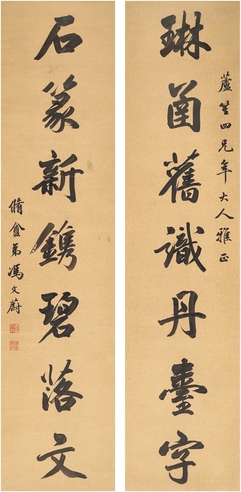 琳函舊識丹臺字
蘆笙四兄年大人雅正
石篆新鐫碧落文
脩盦弟馮文蔚